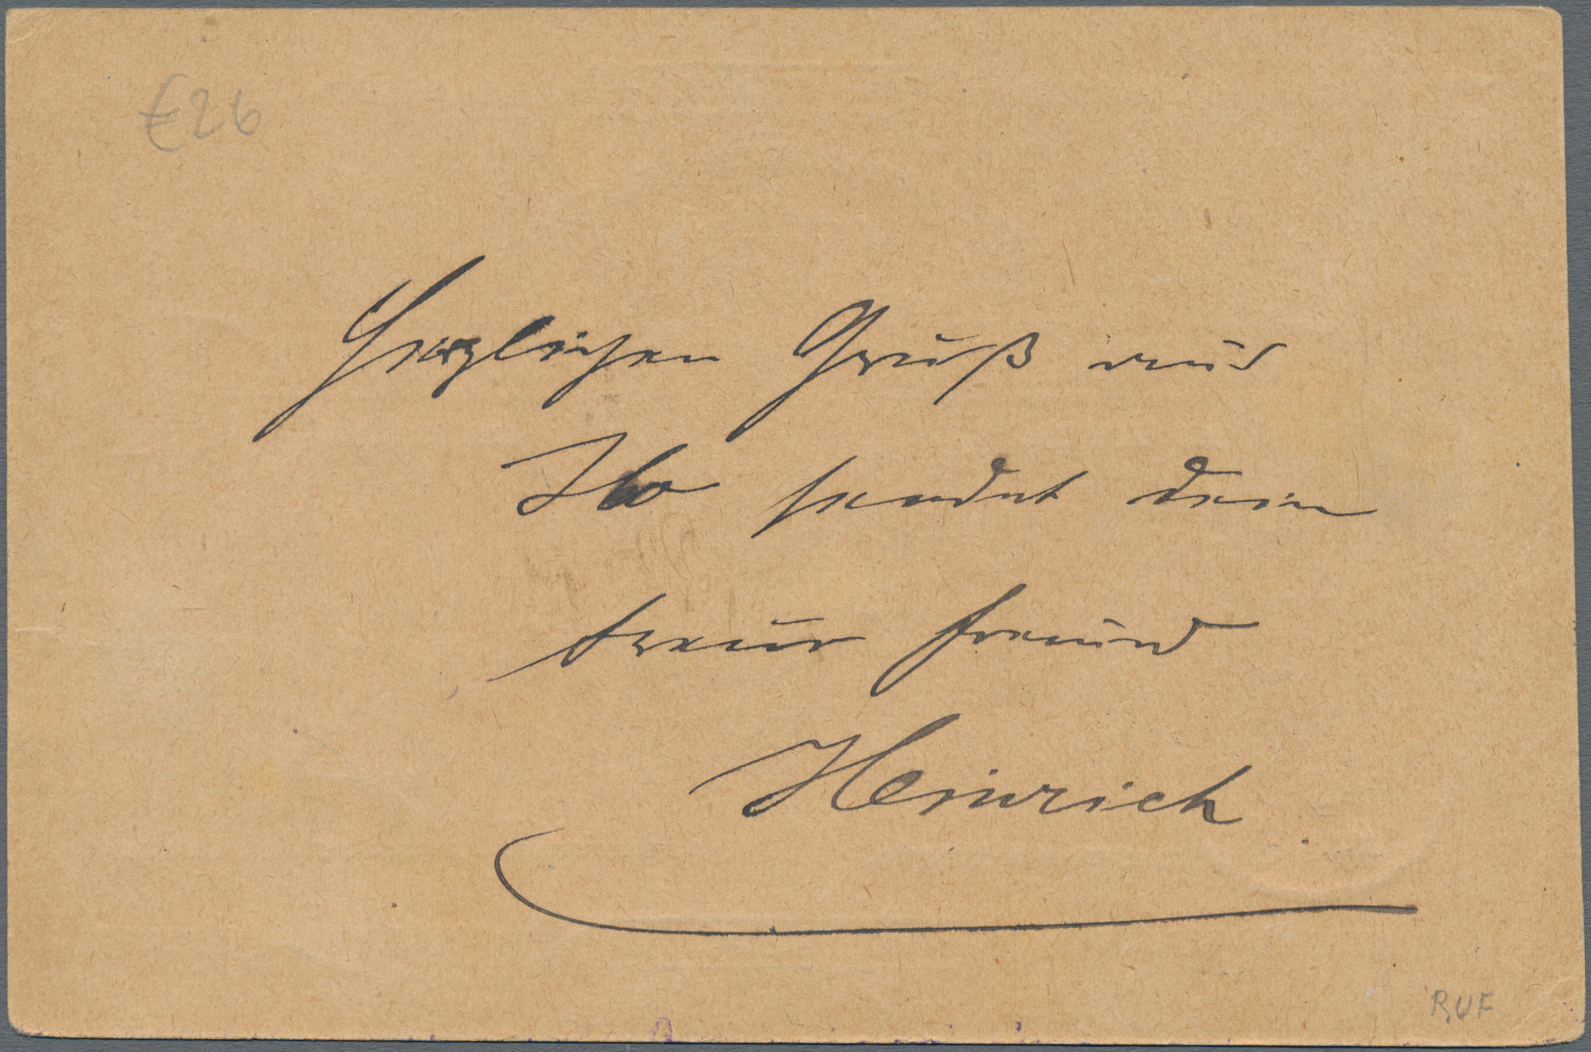 €26
Herzlichen Gruß aus
Ibo sendet dein
treuer Freund
Heinrich
RUF